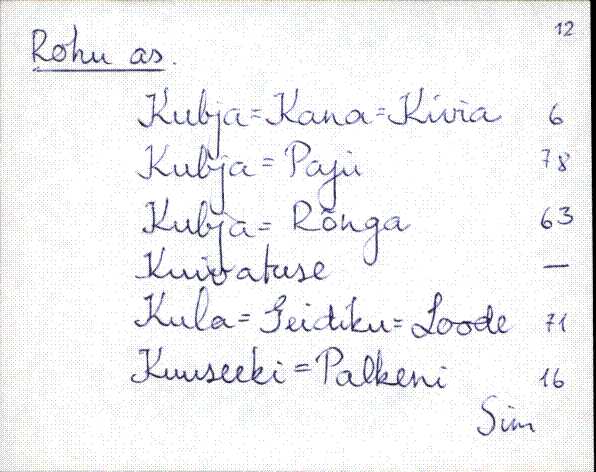 12
Rohu as.
Kubja=Kana=Kivia 6
Kubja=Paju 78
Kubja=Rõnga 63
Kuivatuse —
Kula=Teidiku=Loode 71
Kuuseeki=Palkeni 16
Sim